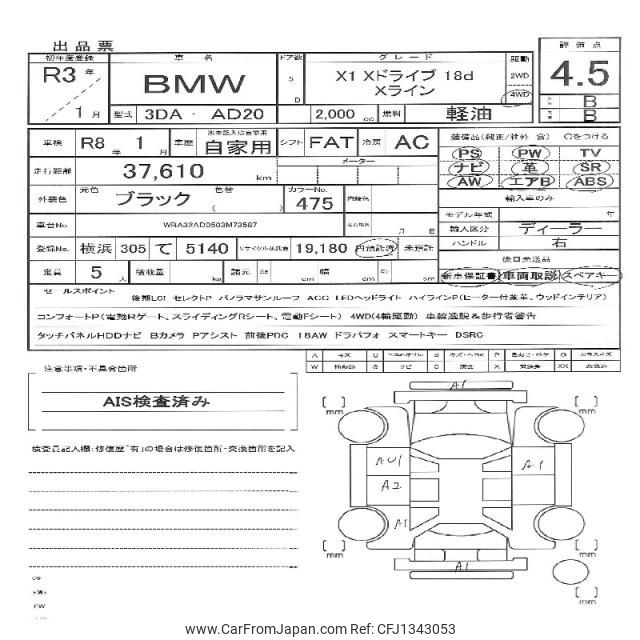 出品票
初年度登録 車 名 ドア数 グレード 駆動 評価点
R3 年 BMW 5 D X1 Xドライブ 18d Xライン 2WD 4WD 4.5
1 月 型式 3DA - AD20 2,000 cc 燃料 軽油 B
B
車検 R8 年 1 月 車歴 自家用 シフト FAT 冷房 AC 装備品(純正/社外 含) ○をつける
PS PW TV
走行距離 37,610 km メーター ナビ 革 SR
AW エアB ABS
外装色 元色 ブラック 色替 ( ) カラーNo. 475 輸入車のみ
モデル年式 年
車台No. 月 日 輸入区分 ディーラー
登録No. 横浜 305 て 5140 リサイクル預託金 19,180 円預託済 未預託 ハンドル 右
後日発送品
定員 5 人 積載量 kg 諸元 cm 幅 cm cm 新車保証書 車両取説 スペアキー
セールスポイント
後期LCI セレクトP パノラマサンルーフ ACC LEDヘッドライト ハイラインP(ヒーター付黒革、ウッドインテリア)
コンフォートP(電動Rゲート、スライディングRシート、電動Fシート) 4WD(4輪駆動) 車線逸脱&歩行者警告
タッチパネルHDDナビ Bカメラ Pアシスト 前後PDC 18AW ドラバフォ スマートキー DSRC
注意事項・不具合箇所
AIS検査済み
検査員記入欄:修復歴"有"の場合は修復箇所・交換箇所を記入
A1
[ ] mm [ ] mm
AU1 A1
A2
A1
[ ] mm A1 [ ] mm
[ ] mm
www.CarFromJapan.com Ref: CFJ1343053